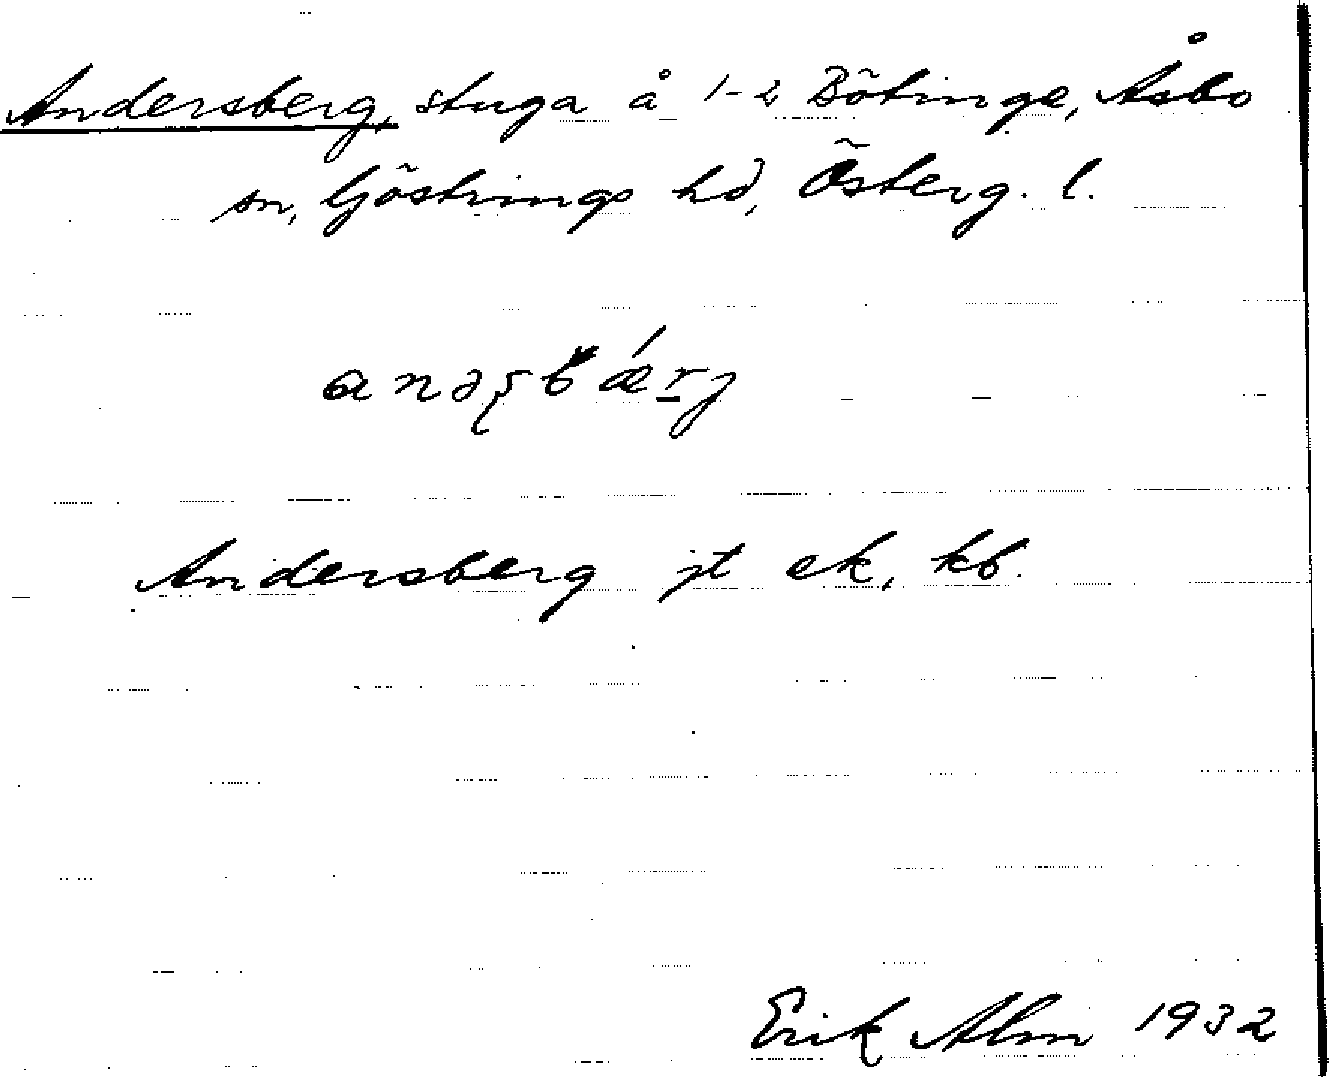 Andersberg, stuga å 1-2 Bötinge, Åsbo
sn, Göstrings hd, Österg. l.
Andersberg jt ek, kb.
Erik Alm 1932